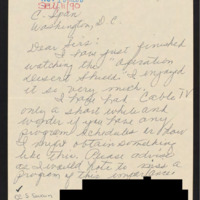 C. Span
Washington, D.C.
Dear Sirs:
I have just finished
watching the "Operation
Desert Shield" I enjoyed
it so very much.
I have had Cable TV
only a short while and
wonder if you have any
program schedules or how
I might obtain something
like this. Please advise
as I would hate to miss a
program of this